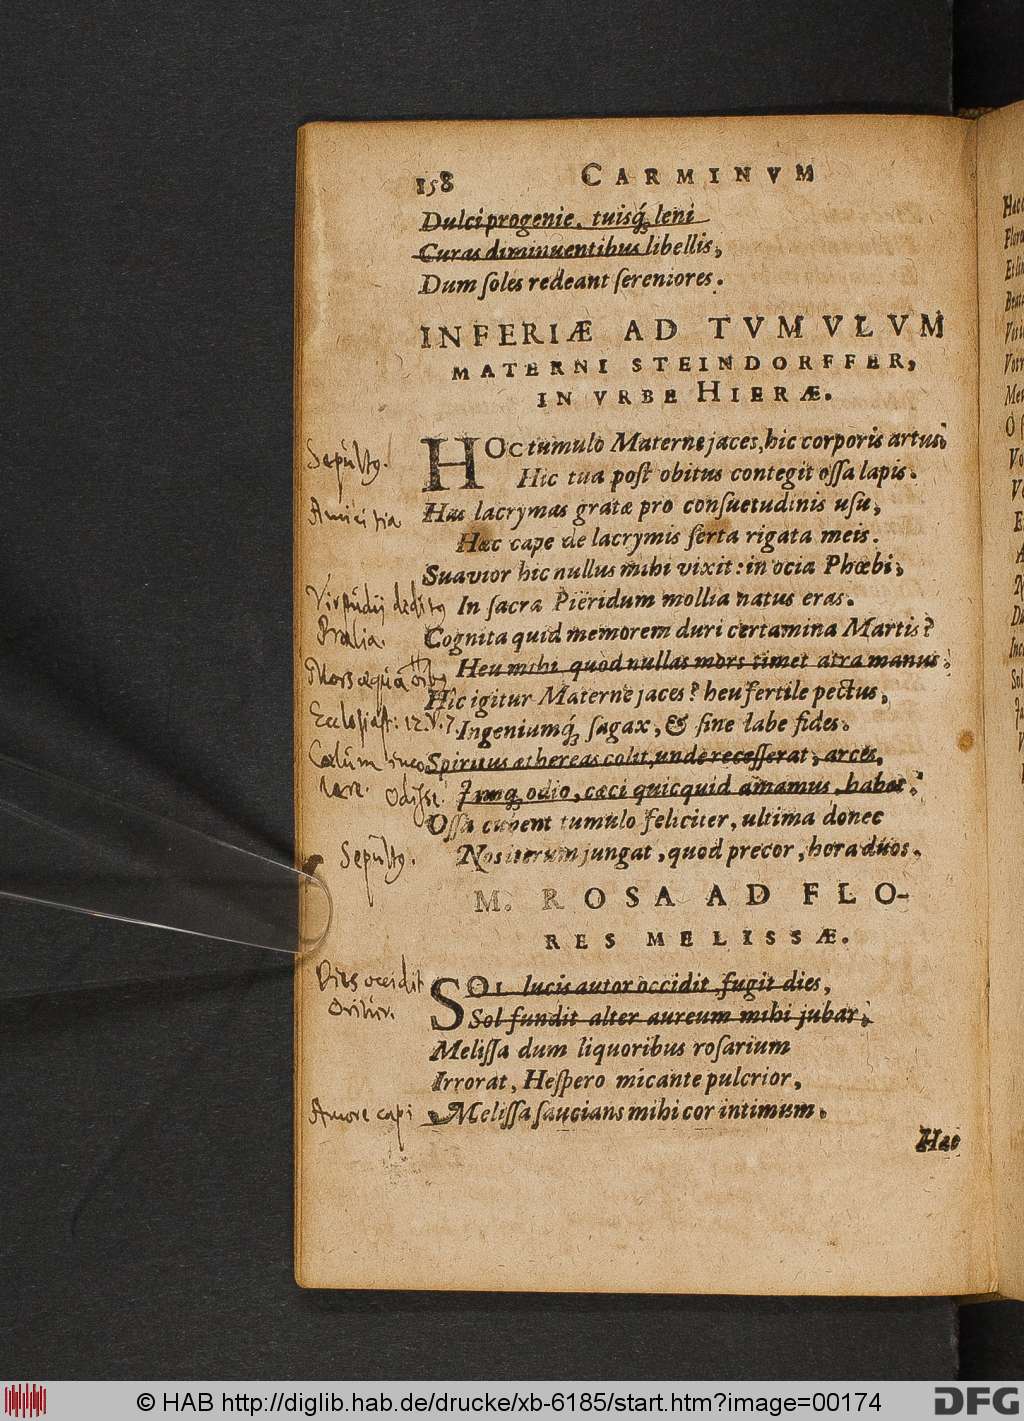 158 CARMINVM
Dulci progenie, tuisq́; leni
Curas diminuentibus libellis,
Dum ſoles redeant ſereniores.
INFERIÆ AD TVMVLVM
MATERNI STEINDORFFER,
IN VRBE HIERÆ.
HOc tumulo Materne jaces, hic corporis artus:
Hic tua poſt obitus contegit oſſa lapis.
Has lacrymas gratæ pro conſuetudinis uſu,
Hæc cape de lacrymis ſerta rigata meis.
Suavior hic nullus mihi vixit: in ocia Phœbi,
In ſacra Pieridum mollia natus eras.
Cognita quid memorem duri certamina Martis?
Heu mihi quod nullas mors timet atra manus.
Hîc igitur Materne jaces? heu fertile pectus,
Ingeniumq́; ſagax, & ſine labe fides.
Spiritus æthereas colit, unde receſſerat, arces,
Inq; odio, cæci quicquid amamus, habet:
Oſſa cubent tumulo feliciter, ultima donec
Nos iterum jungat, quod precor, hora duos.
M. ROSA AD FLO-
RES MELISSÆ.
SOl lucis autor occidit, fugit dies,
Sol fundit alter aureum mihi jubar;
Meliſſa dum liquoribus roſarium
Irrorat, Heſpero micante pulcrior,
Meliſſa ſaucians mihi cor intimum.
Hæc
Sepultg.
Amicitia
Prælia.
Mors æqua
Eccleſiaſt: 12. V. 7.
Cœlum inco
lere. Odiſſe.
Sepultg.
Dies occidit
Oritur.
Amore capi
© HAB http://diglib.hab.de/drucke/xb-6185/start.htm?image=00174
DFG